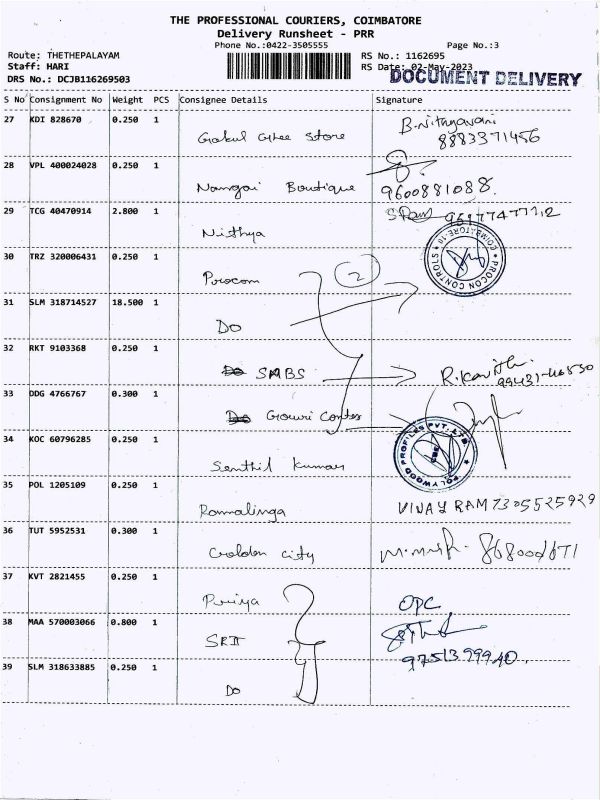 THE PROFESSIONAL COURIERS, COIMBATORE
Delivery Runsheet - PRR
Phone No.:0422-3505555 Page No.:3
Route: THETHEPALAYAM RS No.: 1162695
Staff: HARI RS Date: 02-May-2023
DRS No.: DCJB116269503 DOCUMENT DELIVERY
S No Consignment No Weight PCS Consignee Details Signature
27 KDI 828670 0.250 1
Gokul Ghee Store 8883371456
28 VPL 400024028 0.250 1
Nangai Boutique 9600881088.
29 TCG 40470914 2.800 1
Nithya
30 TRZ 320006431 0.250 1
Procon 2 PROCON CONTROLS COIMBATORE
31 SLM 318714527 18.500 1
DO
32 RKT 9103368 0.250 1
SMBS R.Kavitha
33 DDG 4766767 0.300 1
Gowri
34 KOC 60796285 0.250 1
Senthil Kumar POLYWOOD PROFILES PVT. LTD
35 POL 1205109 0.250 1
Ramalinga VIJAY RAM 7305525929
36 TUT 5952531 0.300 1
Golden city
37 KVT 2821455 0.250 1
Priya OPC
38 MAA 570003066 0.800 1
39 SLM 318633885 0.250 1
DO